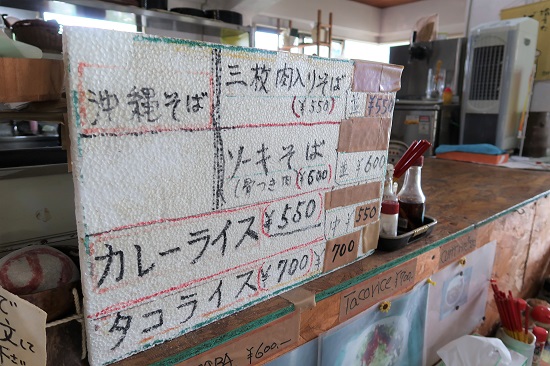 沖縄そば
三枚肉入りそば
(¥550)
並 ¥550
ソーキそば
(骨つき肉) (¥600)
並 ¥600
カレーライス (¥550)
中 ¥550
タコライス (¥700)
¥700
Tacorice ¥700
SOBA ¥600-